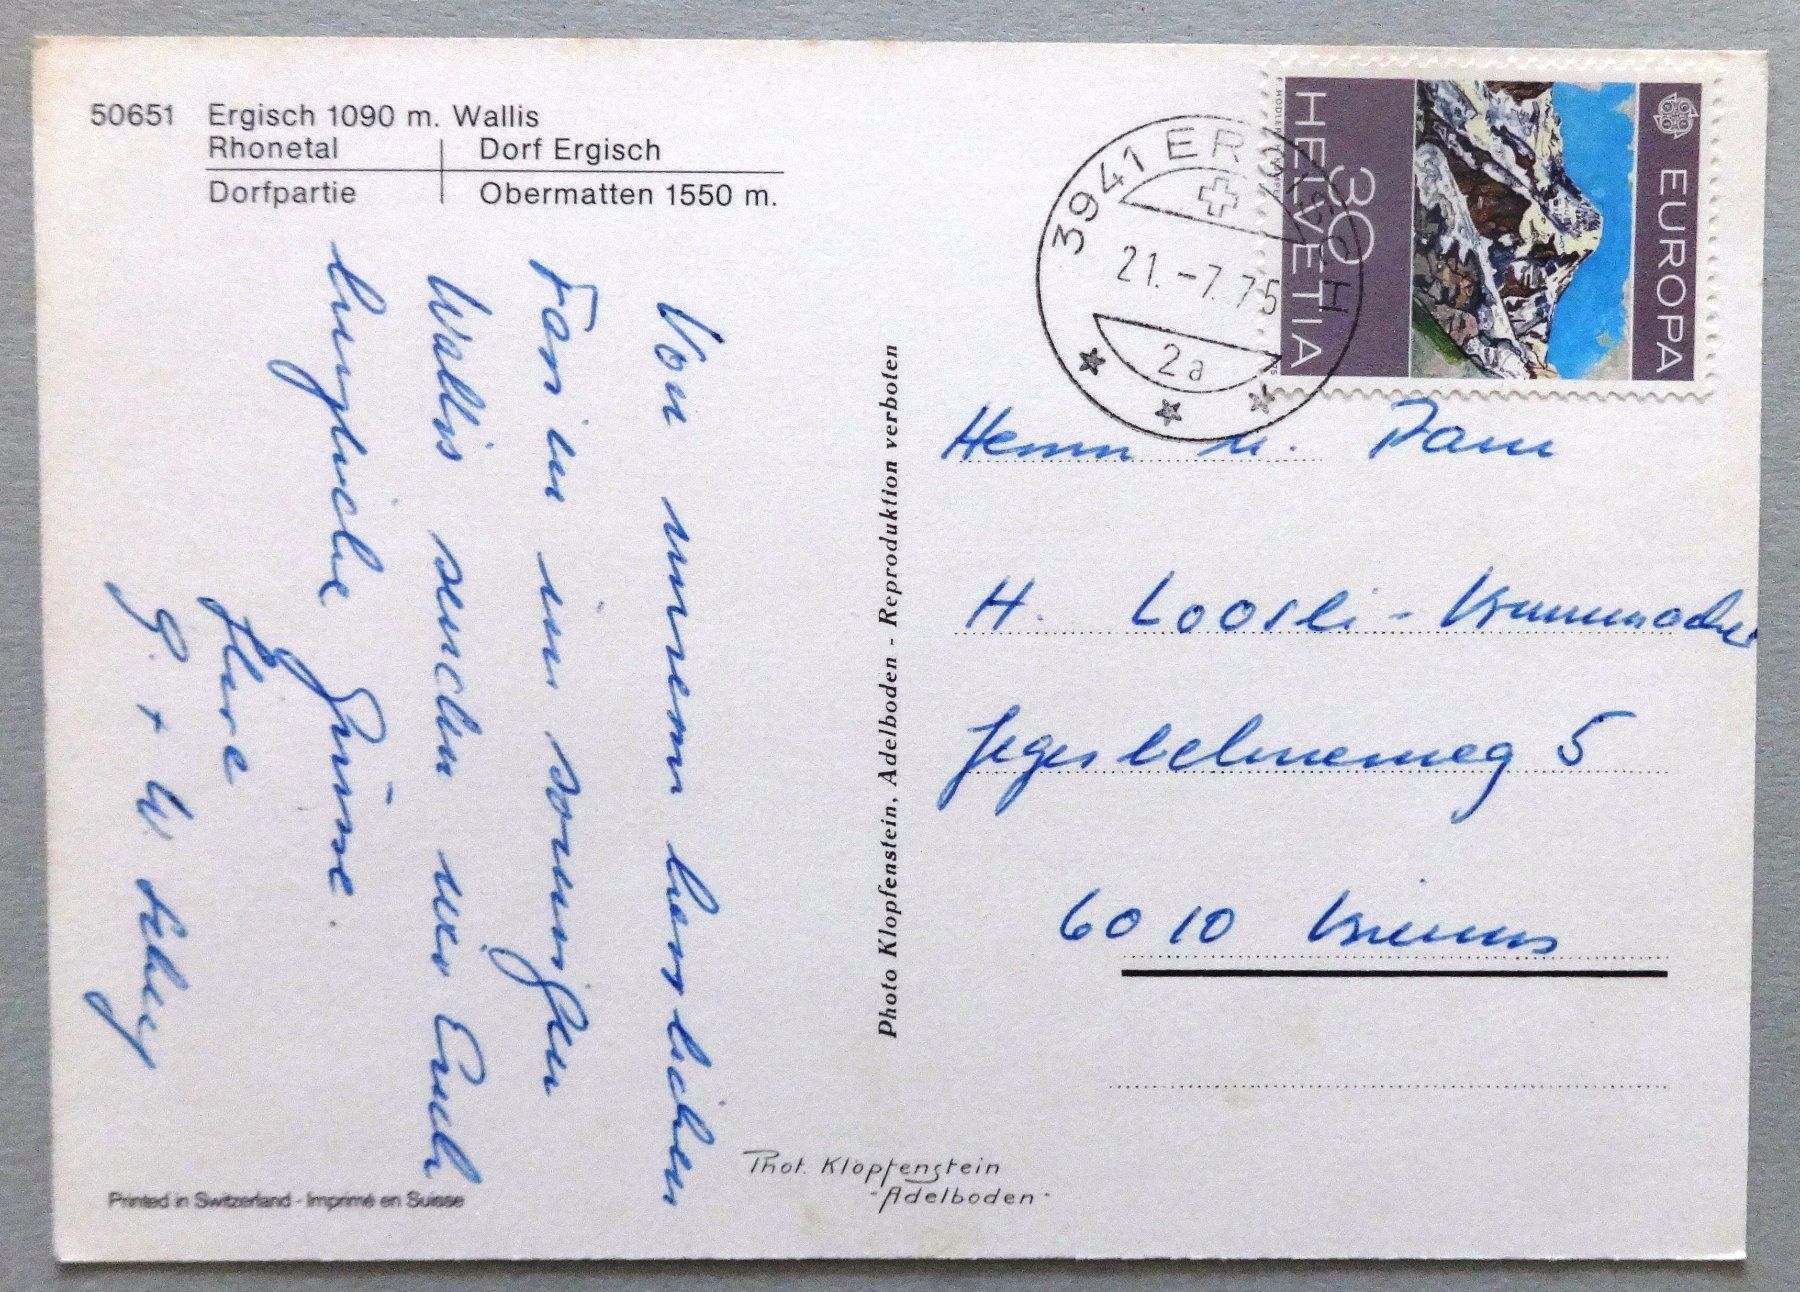 50651 Ergisch 1090 m. Wallis
Rhonetal Dorf Ergisch
Dorfpartie Obermatten 1550 m.
Von unserem herrlichen
Ferien im sonnigen
Wallis senden wir Euch
herzliche Grüsse.
Ihre
G. + W.
Printed in Switzerland - Imprimé en Suisse
Photo Klopfenstein, Adelboden - Reproduktion verboten
Phot. Klopfenstein
- Adelboden -
3941 ERGISCH
21.-7.75
2a
HELVETIA
30
EUROPA
Herrn u. Fam
H. Loosli - Krummenacher
5
6010 Kriens